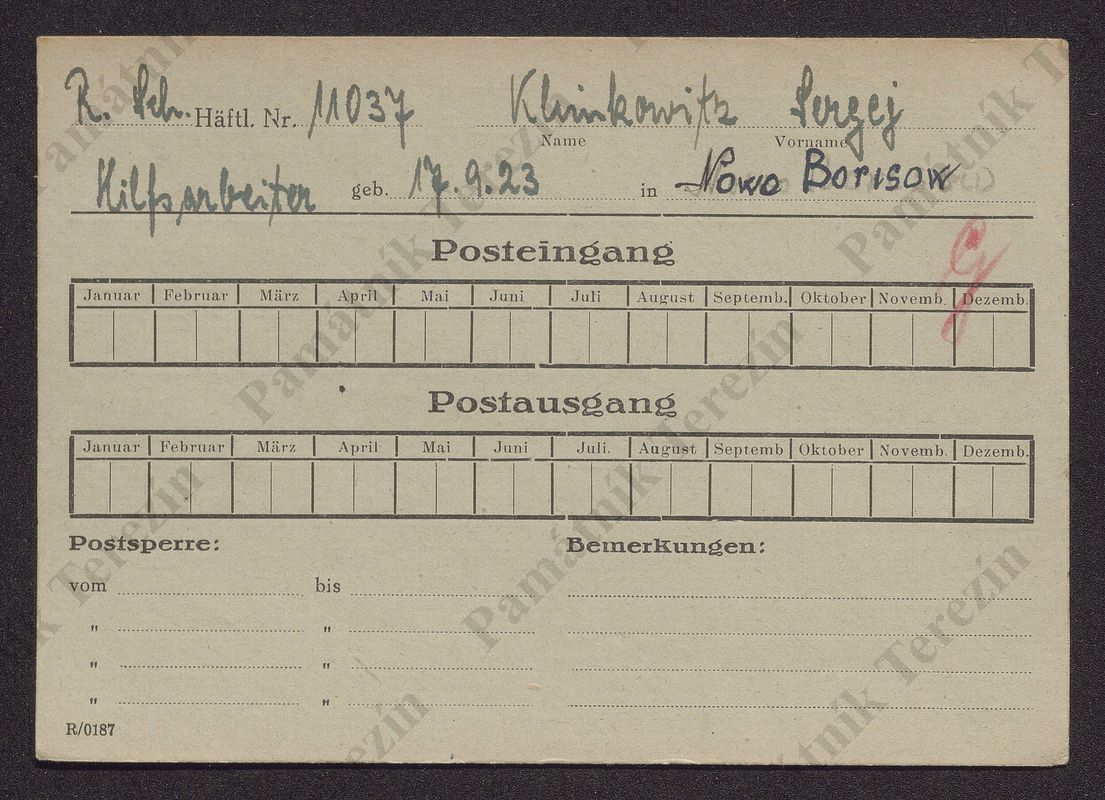 R. Sch. Häftl. Nr. 11037 Klimkowitz Sergej
Name Vorname
Hilfsarbeiter geb. 17.9.23 in Nowo Borisow
Posteingang
G
Januar Februar März April Mai Juni Juli August Septemb. Oktober Novemb. Dezemb.
Postausgang
Januar Februar März April Mai Juni Juli. August Septemb Oktober Novemb. Dezemb.
Postsperre: Bemerkungen:
vom bis
" "
" "
" "
R/0187
Památník Terezín